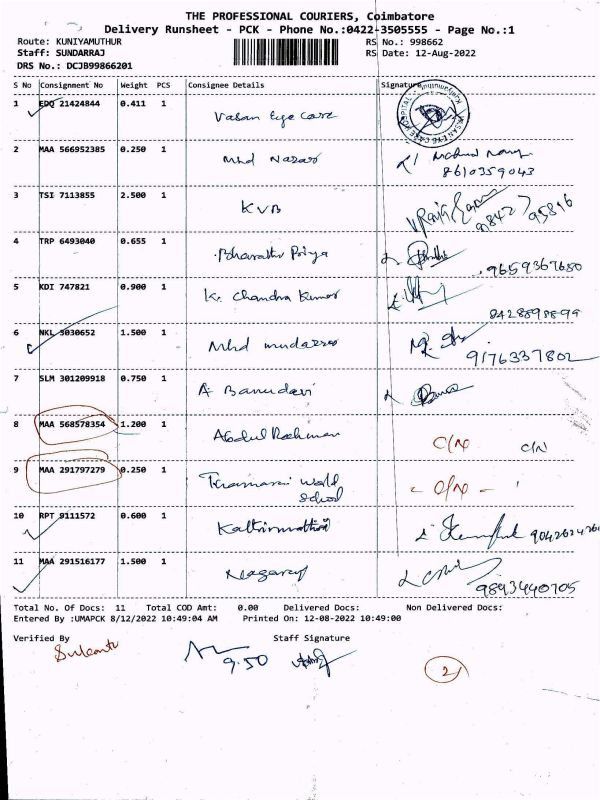 THE PROFESSIONAL COURIERS, Coimbatore
Delivery Runsheet - PCK - Phone No.:0422-3505555 - Page No.:1
Route: KUNIYAMUTHUR RS No.: 998662
Staff: SUNDARRAJ RS Date: 12-Aug-2022
DRS No.: DCJB99866201
S No Consignment No Weight PCS Consignee Details Signature
1 EDQ 21424844 0.411 1 Vasan Eye Care
2 MAA 566952385 0.250 1 Mhd Nasar
8610359043
3 TSI 7113855 2.500 1 KVB
98427 95816
4 TRP 6493040 0.655 1 Bharathi Priya
9659367680
5 KDI 747821 0.900 1 K. Chandra Kumar
8428898899
6 NKL 3030652 1.500 1 Mhd mudassar
9176337802
7 SLM 301209918 0.750 1 A Banudevi
8 MAA 568578354 1.200 1 Abdul Rachman C/N C/N
9 MAA 291797279 0.250 1 world - C/N -
School
10 RPT 9111572 0.600 1
11 MAA 291516177 1.500 1 Nagaraj
9893440705
Total No. Of Docs: 11 Total COD Amt: 0.00 Delivered Docs: Non Delivered Docs:
Entered By :UMAPCK 8/12/2022 10:49:04 AM Printed On: 12-08-2022 10:49:00
Verified By Staff Signature
9.50
2